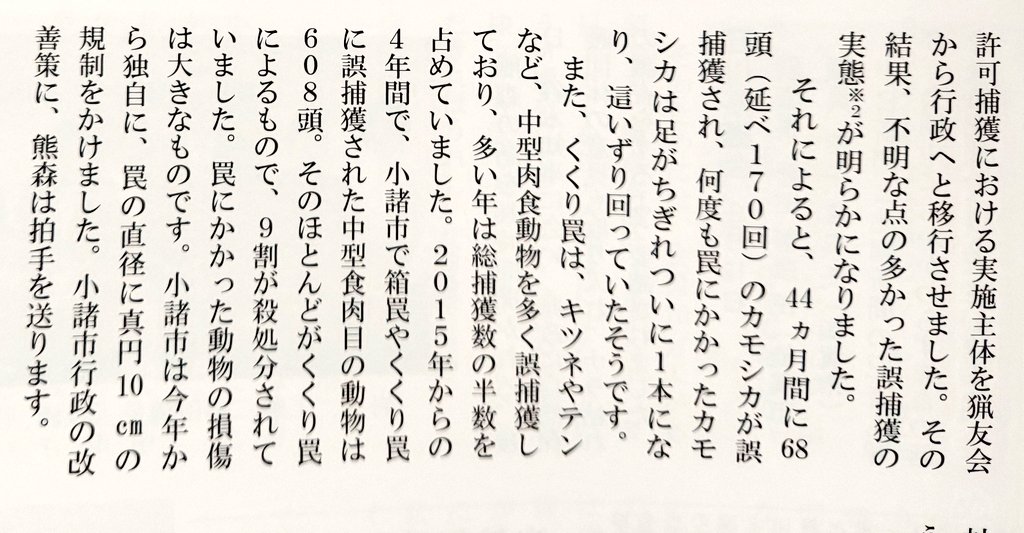 許可捕獲における実施主体を猟友会
から行政へと移行させました。その
結果、不明な点の多かった誤捕獲の
実態※2が明らかになりました。
それによると、44ヵ月間に68
頭（延べ170回）のカモシカが誤
捕獲され、何度も罠にかかったカモ
シカは足がちぎれついに1本にな
り、這いずり回っていたそうです。
また、くくり罠は、キツネやテン
など、中型肉食動物を多く誤捕獲し
ており、多い年は総捕獲数の半数を
占めていました。2015年からの
4年間で、小諸市で箱罠やくくり罠
に誤捕獲された中型食肉目の動物は
608頭。そのほとんどがくくり罠
によるもので、9割が殺処分されて
いました。罠にかかった動物の損傷
は大きなものです。小諸市は今年か
ら独自に、罠の直径に真円10cmの
規制をかけました。小諸市行政の改
善策に、熊森は拍手を送ります。